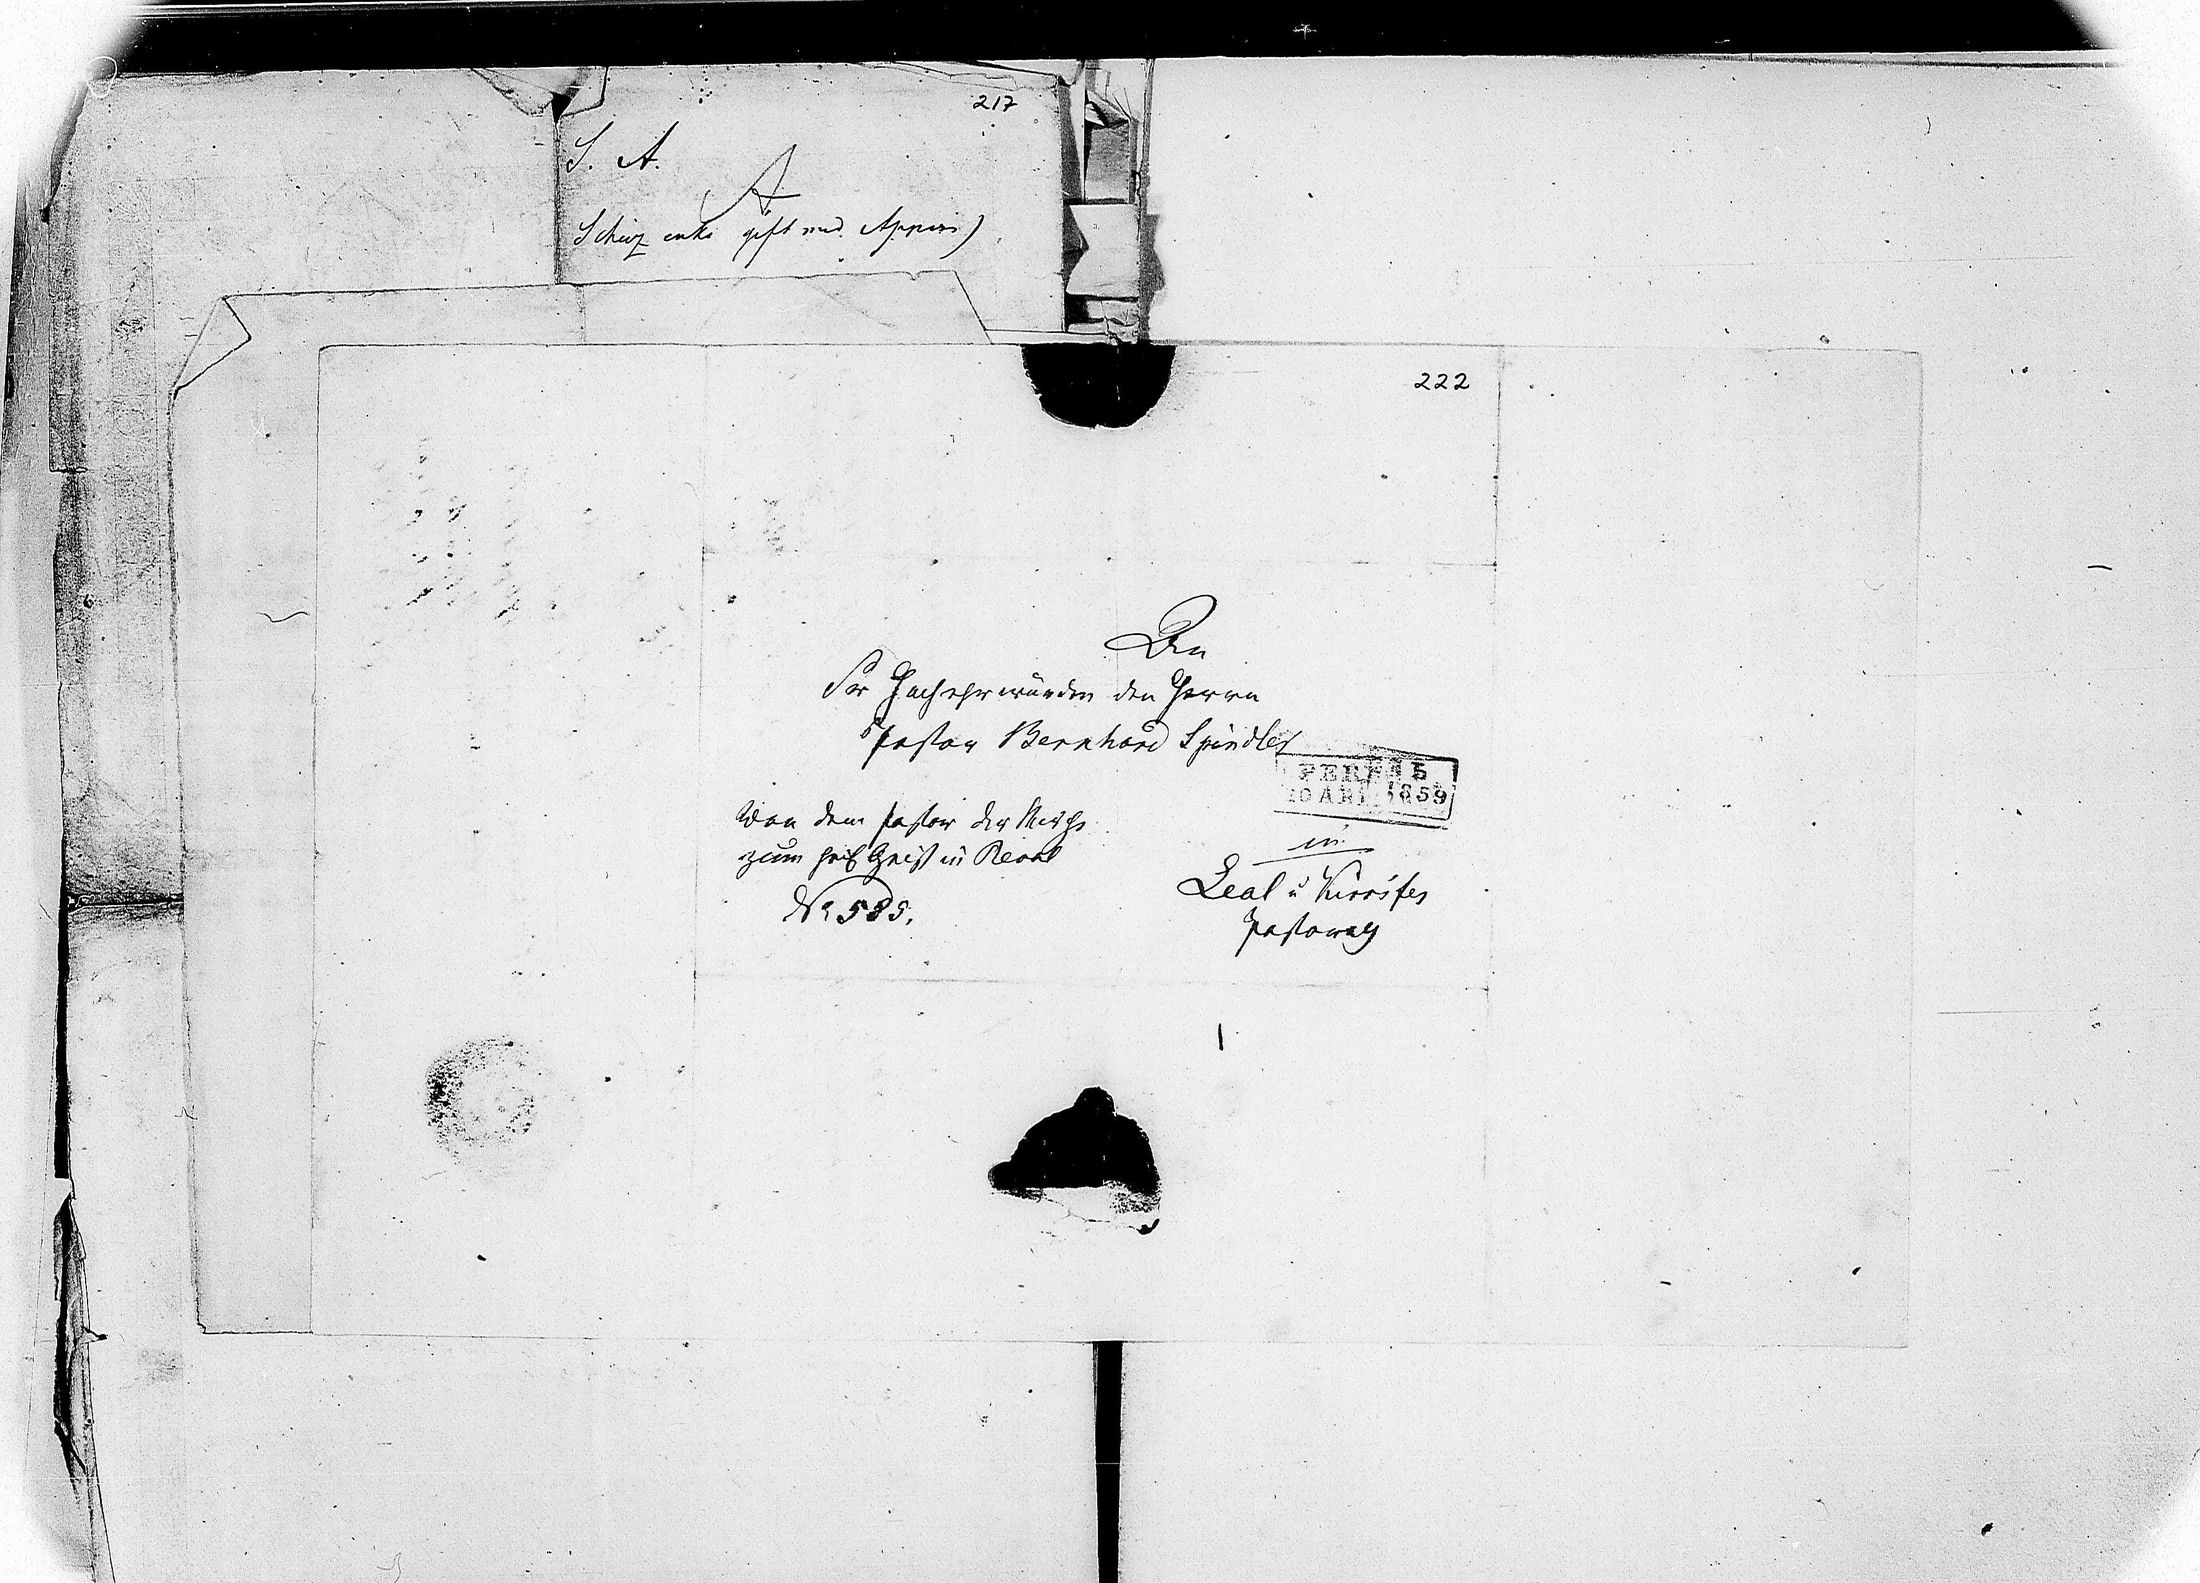 217
S. A.
A
gift und
222
An
Sr Hochehrwürden den Herrn
Pastor Bernhard Spindler
PERNAU
10 APR. 1859
Von dem Pastor der Kirche
zum heil Geist in Reval
No 585.
in
Leal u Kirrefer
Pastorat